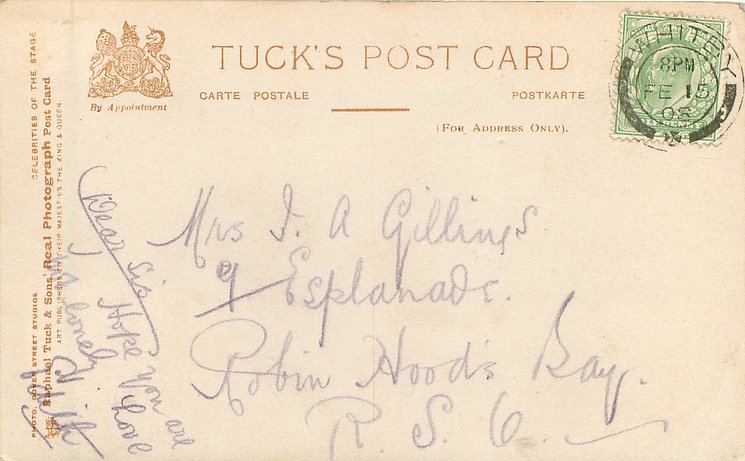 TUCK'S POST CARD
By Appointment
CARTE POSTALE
POSTKARTE
(FOR ADDRESS ONLY).
WHITBY
8PM
FE 15
CELEBRITIES OF THE STAGE
Raphael Tuck & Sons' Real Photograph Post Card
ART PUBLISHERS TO THEIR MAJESTIES THE KING & QUEEN.
PHOTO, DOVER STREET STUDIOS
Mrs J. A Gillings.
9 Esplanade.
Robin Hood's Bay.
R. S. O.
Dear Sis
Hope you are
lonely
Love